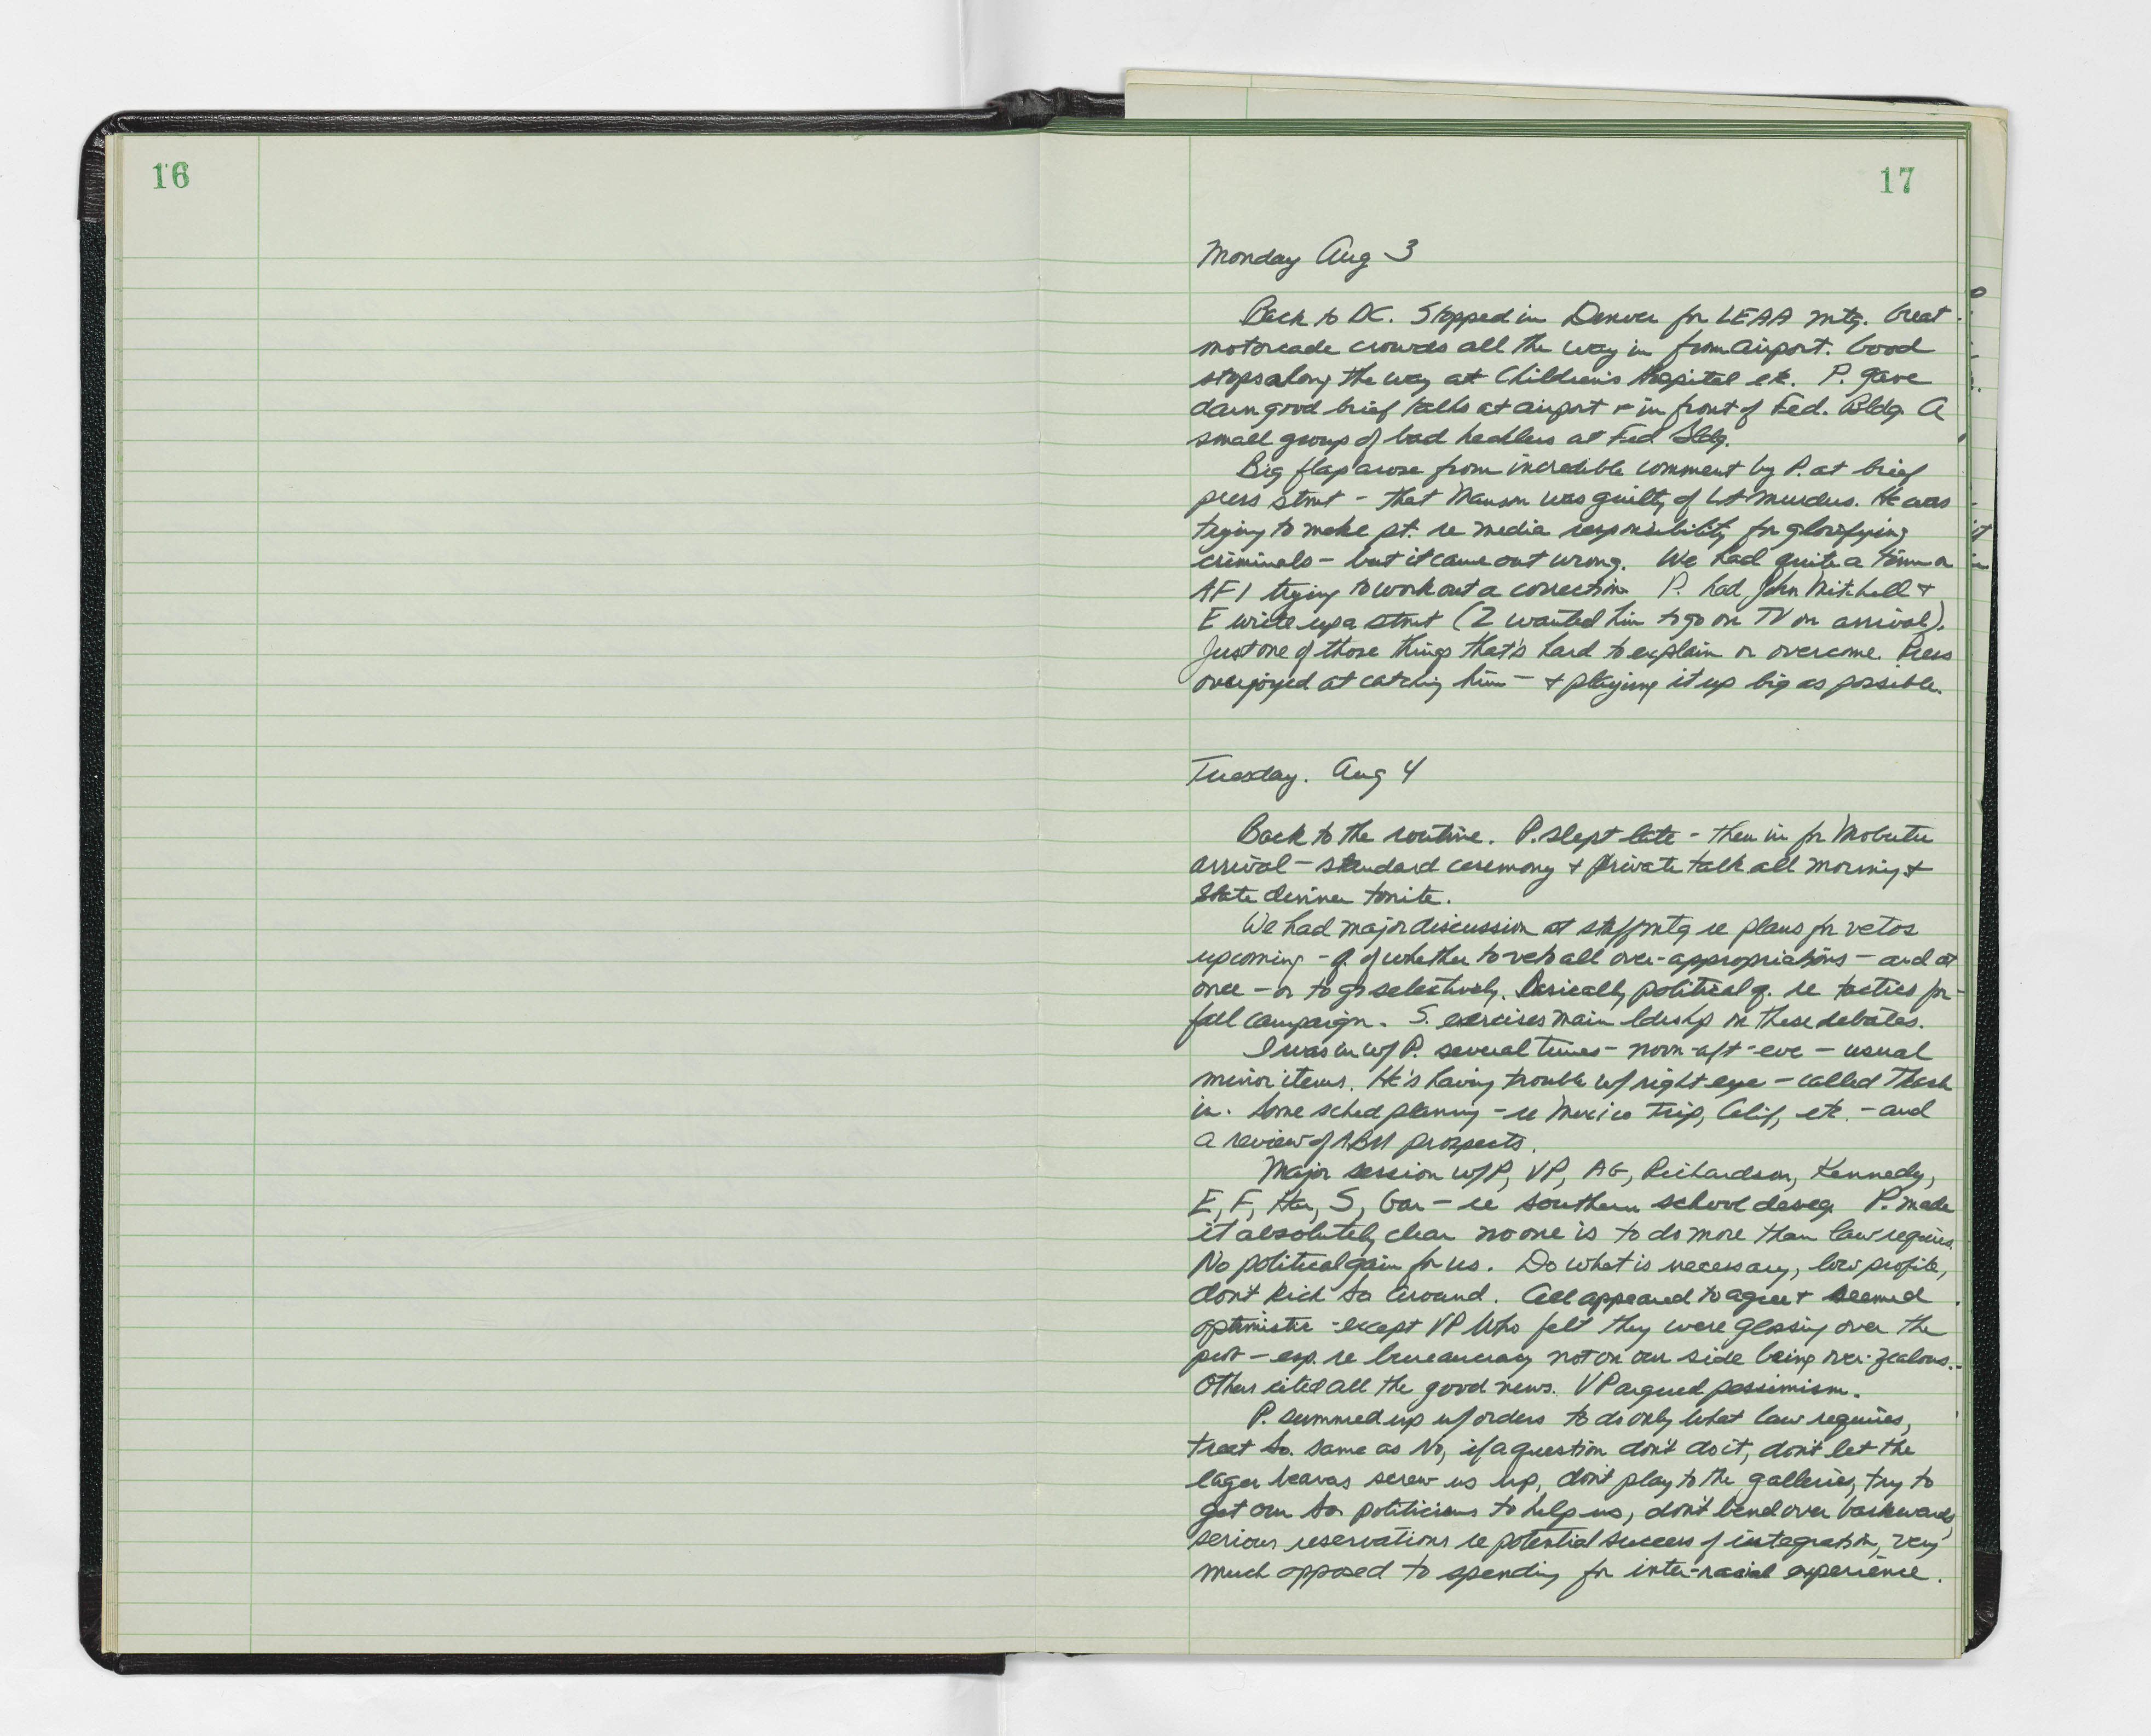 16
17
Monday Aug 3
Back to DC. Stopped in Denver for LEAA mtg. Great
motorcade crowds all the way in from airport. Good
stops along the way at Children's Hospital etc. P. gave
darn good brief talks at airport + in front of Fed. Bldg. A
small group of bad hecklers at Fed Bldg.
Big flap arose from incredible comment by P. at brief
press stmt - that Manson was guilty of LA murders. He was
trying to make pt. re media responsibility for glorifying
criminals - but it came out wrong. We had quite a time on
AF1 trying to work out a correction. P. had John Mitchell +
E write up a stmt (I wanted him to go on TV on arrival).
Just one of those things that's hard to explain or overcome. Press
overjoyed at catching him - + playing it up big as possible.
Tuesday. Aug 4
Back to the routine. P. slept late - then in for Mobutu
arrival - standard ceremony + private talk all morning +
State dinner tonite.
We had major discussion at staff mtg re plans for vetos
upcoming - q. of whether to veto all over-appropriations - and at
once - or to go selectively. Basically political q. re tactics for
fall campaign. S. exercises main ldrshp in these debates.
I was in w/ P. several times - noon-aft-eve - usual
minor items. He's having trouble w/ right eye - called Tkach
in. Some sched planning - re Mexico trip, Calif, etc. - and
a review of ABM prospects.
Major session w/ P, VP, AG, Richardson, Kennedy,
E, F, Har, S, Gar - re southern school deseg. P. made
it absolutely clear no one is to do more than law requires.
No political gain for us. Do what is necessary, low profile,
don't kick So around. All appeared to agree + seemed
optimistic - except VP who felt they were glossing over the
prob - esp. re bureaucracy not on our side being over-zealous.
Others cited all the good news. VP argued pessimism.
P. summed up w/ orders to do only what law requires,
treat So. same as No, if a question don't do it, don't let the
eager beavers screw us up, don't play to the galleries, try to
get our So politicians to help us, don't bend over backwards,
serious reservations re potential success of integration, very
much opposed to spending for inter-racial experience.